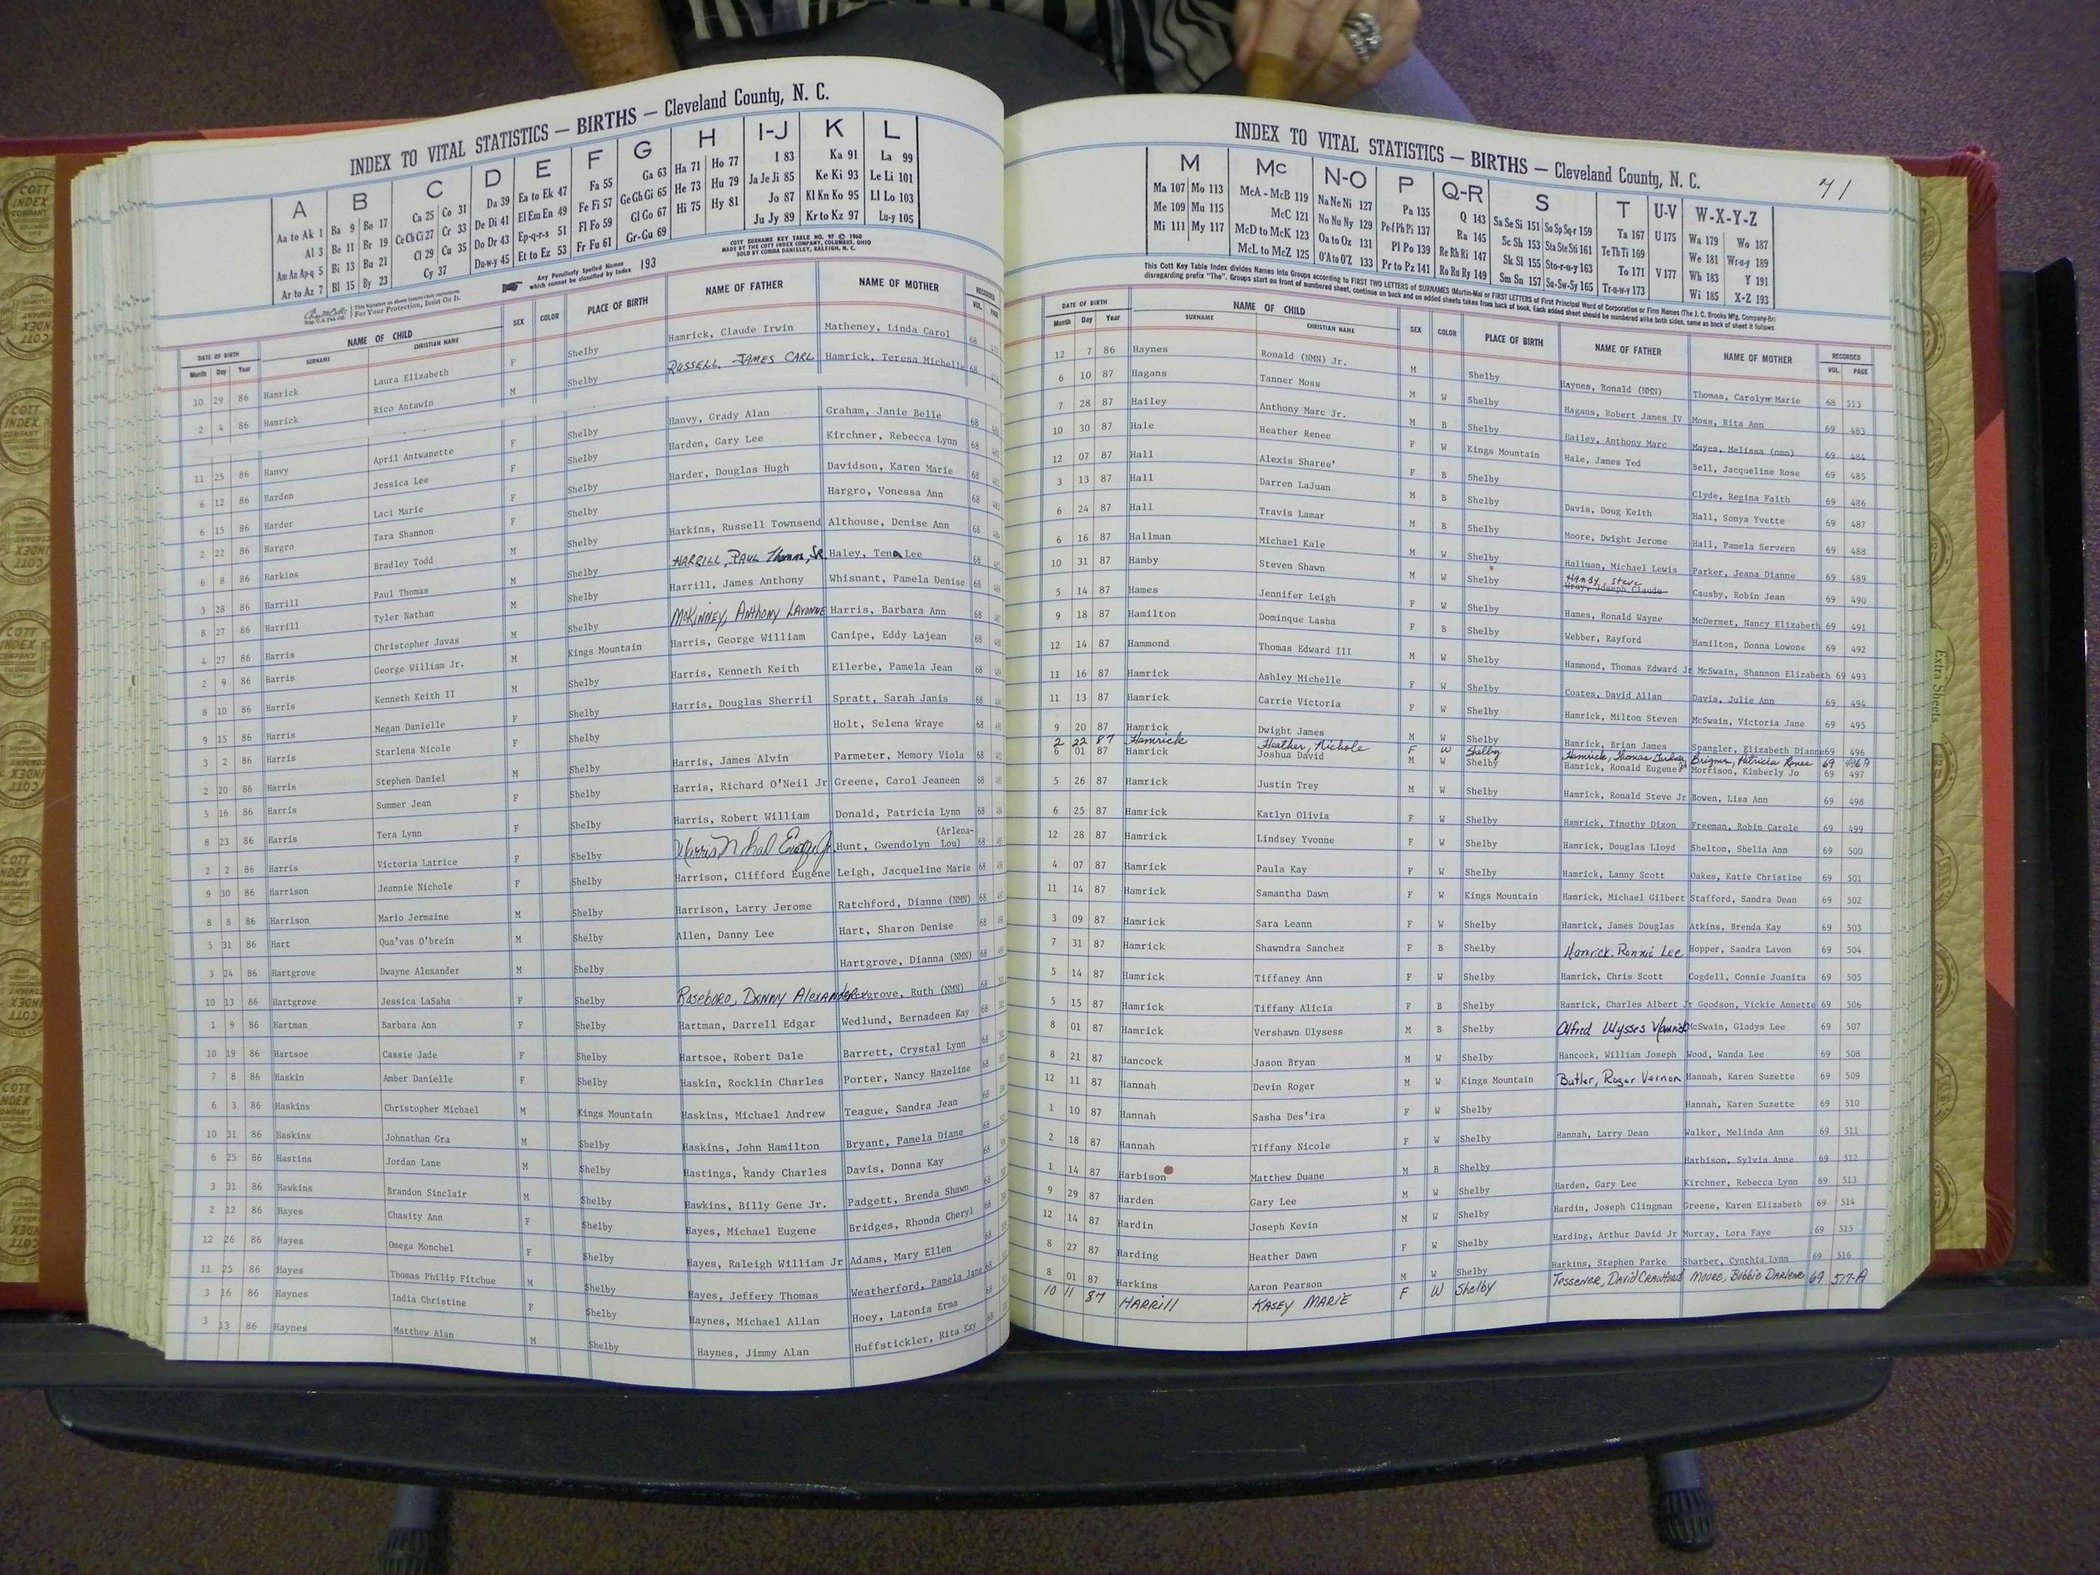 INDEX TO VITAL STATISTICS — BIRTHS — Cleveland County, N. C.
A B C D E F G H I-J K L
Aa to Ak 1 Ba 9 Bo 17 Ca 25 Co 31 Da 39 Ea to Ek 47 Fa 55 Ga 63 Ha 71 Ho 77 I 83 Ka 91 La 99
Al 3 Be 11 Br 19 Ce Ch Ci 27 Cr 33 De Di 41 El Em En 49 Fe Fi 57 Ge Gh Gi 65 He 73 Hu 79 Ja Je Ji 85 Ke Ki 93 Le Li 101
Am An Ap-q 5 Bi 13 Bu 21 Cl 29 Cu 35 Do Dr 43 Ep-q-r-s 51 Fl Fo 59 Gl Go 67 Hi 75 Hy 81 Jo 87 Kl Kn Ko 95 Ll Lo 103
Ar to Az 7 Bl 15 By 23 Cy 37 Du-w-y 45 Et to Ez 53 Fr Fu 61 Gr-Gu 69 Ju Jy 89 Kr to Kz 97 Lu-y 105
Any Peculiarly Spelled Names which cannot be classified by Index 193
COTT SURNAME KEY TABLE NO. 97 © 1960
MADE BY THE COTT INDEX COMPANY, COLUMBUS, OHIO
SOLD BY COMMA DANIELEY, RALEIGH, N. C.
This Signature on sheets insures their correctness.
For Your Protection, Insist On It.
DATE OF BIRTH NAME OF CHILD SEX COLOR PLACE OF BIRTH NAME OF FATHER NAME OF MOTHER RECORDED
Month Day Year SURNAME CHRISTIAN NAME VOL. PAGE
10 29 86 Hamrick Laura Elizabeth F Shelby Hamrick, Claude Irwin Matheney, Linda Carol 68
2 4 86 Hamrick Rico Antawin M Shelby RUSSELL, JAMES CARL Hamrick, Teresa Michelle 68
11 25 86 Hanvy April Antwanette F Shelby Hanvy, Grady Alan Graham, Janie Belle 68
6 12 86 Harden Jessica Lee F Shelby Harden, Gary Lee Kirchner, Rebecca Lynn 68
6 15 86 Harder Laci Marie F Shelby Harder, Douglas Hugh Davidson, Karen Marie 68
2 22 86 Hargro Tara Shannon F Shelby Hargro, Vonessa Ann 68
6 8 86 Harkins Bradley Todd M Shelby Harkins, Russell Townsend Althouse, Denise Ann 68
3 28 86 Harrill Paul Thomas M Shelby HARRILL, PAUL Thomas, SR. Haley, Tena Lee 68
8 27 86 Harrill Tyler Nathan M Shelby Harrill, James Anthony Whisnant, Pamela Denise 68
4 27 86 Harris Christopher Javas M Shelby McKinney, Anthony LaVonne Harris, Barbara Ann 68
2 9 86 Harris George William Jr. M Kings Mountain Harris, George William Canipe, Eddy Lajean 68
8 10 86 Harris Kenneth Keith II M Shelby Harris, Kenneth Keith Ellerbe, Pamela Jean 68
9 15 86 Harris Megan Danielle F Shelby Harris, Douglas Sherril Spratt, Sarah Janis 68
3 2 86 Harris Starlena Nicole F Shelby Holt, Selena Wraye 68
2 20 86 Harris Stephen Daniel M Shelby Harris, James Alvin Parmeter, Memory Viola 68
5 16 86 Harris Summer Jean F Shelby Harris, Richard O'Neil Jr Greene, Carol Jeaneen 68
8 23 86 Harris Tera Lynn F Shelby Harris, Robert William Donald, Patricia Lynn 68
2 2 86 Harris Victoria Latrice F Shelby Jr. Hunt, Gwendolyn (Arlena-Lou) 68
9 30 86 Harrison Jeannie Nichole F Shelby Harrison, Clifford Eugene Leigh, Jacqueline Marie 68
8 8 86 Harrison Mario Jermaine M Shelby Harrison, Larry Jerome Ratchford, Dianne (NMN) 68
5 31 86 Hart Qua'vas O'brein M Shelby Allen, Danny Lee Hart, Sharon Denise 68
3 24 86 Hartgrove Dwayne Alexander M Shelby Hartgrove, Dianna (NMN) 68
10 13 86 Hartgrove Jessica LaSaha F Shelby Roseboro, Danny Alexander Hartgrove, Ruth (NMN) 68
1 9 86 Hartman Barbara Ann F Shelby Hartman, Darrell Edgar Wedlund, Bernadeen Kay 68
10 19 86 Hartsoe Cassie Jade F Shelby Hartsoe, Robert Dale Barrett, Crystal Lynn 68
7 8 86 Haskin Amber Danielle F Shelby Haskin, Rocklin Charles Porter, Nancy Hazeline 68
6 3 86 Haskins Christopher Michael M Kings Mountain Haskins, Michael Andrew Teague, Sandra Jean 68
10 31 86 Haskins Johnathan Gra M Shelby Haskins, John Hamilton Bryant, Pamela Diane 68
6 25 86 Hastins Jordan Lane M Shelby Hastings, Randy Charles Davis, Donna Kay 68
3 31 86 Hawkins Brandon Sinclair M Shelby Hawkins, Billy Gene Jr. Padgett, Brenda Shawn 68
2 12 86 Hayes Chasity Ann F Shelby Hayes, Michael Eugene Bridges, Rhonda Cheryl 68
12 26 86 Hayes Omega Monchel F Shelby Hayes, Raleigh William Jr Adams, Mary Ellen 68
11 25 86 Hayes Thomas Philip Fitchue M Shelby Hayes, Jeffery Thomas Weatherford, Pamela Jane 68
3 16 86 Haynes India Christine F Shelby Haynes, Michael Allan Hoey, Latonia Erma 68
3 13 86 Haynes Matthew Alan M Shelby Haynes, Jimmy Alan Huffstickler, Rita Kay 68
INDEX TO VITAL STATISTICS — BIRTHS — Cleveland County, N. C. 71
M Mc N-O P Q-R S T U-V W-X-Y-Z
Ma 107 Mo 113 McA - McB 119 Na Ne Ni 127 Pa 135 Q 143 Sa Se Si 151 So Sp Sq-r 159 Ta 167 U 175 Wa 179 Wo 187
Me 109 Mu 115 McC 121 No Nu Ny 129 Pe-f Ph Pi 137 Ra 145 Sc Sh 153 Sta Ste Sti 161 Te Th Ti 169 We 181 Wr-u-y 189
Mi 111 My 117 McD to McK 123 Oa to Oz 131 Pl Po 139 Re Rh Ri 147 Sk Sl 155 Sto-r-u-y 163 To 171 V 177 Wh 183 Y 191
McL to McZ 125 O'A to O'Z 133 Pr to Pz 141 Ro Ru Ry 149 Sm Sn 157 Su-Sw-Sy 165 Tr-u-w-y 173 Wi 185 X-Z 193
This Cott Key Table Index divides Names into Groups according to FIRST TWO LETTERS of SURNAMES (Martin-Ma) or FIRST LETTERS of First Principal Word of Corporation or Firm Names (The J. C. Brooks Mfg. Company-Br)
disregarding prefix "The". Groups start on front of numbered sheet, continue on back and on added sheets taken from back of book. Each added sheet should be numbered alike both sides, same as back of sheet it follows
DATE OF BIRTH NAME OF CHILD SEX COLOR PLACE OF BIRTH NAME OF FATHER NAME OF MOTHER RECORDED
Month Day Year SURNAME CHRISTIAN NAME VOL. PAGE
12 7 86 Haynes Ronald (NMN) Jr. M Shelby Haynes, Ronald (NMN) Thomas, Carolyn Marie 68 513
6 10 87 Hagans Tanner Moss M W Shelby Hagans, Robert James IV Moss, Rita Ann 69 483
7 28 87 Hailey Anthony Marc Jr. M B Shelby Hailey, Anthony Marc Mayes, Melissa (nmn) 69 484
10 30 87 Hale Heather Renee F W Kings Mountain Hale, James Ted Bell, Jacqueline Rose 69 485
12 07 87 Hall Alexis Sharee' F B Shelby Clyde, Regina Faith 69 486
3 13 87 Hall Darren LaJuan M B Shelby Davis, Doug Keith Hall, Sonya Yvette 69 487
6 24 87 Hall Travis Lamar M B Shelby Moore, Dwight Jerome Hall, Pamela Servern 69 488
6 16 87 Hallman Michael Kale M W Shelby Hallman, Michael Lewis Parker, Jeana Dianne 69 489
10 31 87 Hamby Steven Shawn M W Shelby Hamby, Steve Wray, Joseph Claude Causby, Robin Jean 69 490
5 14 87 Hames Jennifer Leigh F W Shelby Hames, Ronald Wayne McDermet, Nancy Elizabeth 69 491
9 18 87 Hamilton Dominque Lasha F B Shelby Webber, Rayford Hamilton, Donna Lowone 69 492
12 14 87 Hammond Thomas Edward III M W Shelby Hammond, Thomas Edward Jr McSwain, Shannon Elizabeth 69 493
11 16 87 Hamrick Ashley Michelle F W Shelby Coates, David Allan Davis, Julie Ann 69 494
11 13 87 Hamrick Carrie Victoria F W Shelby Hamrick, Milton Steven McSwain, Victoria Jane 69 495
9 20 87 Hamrick Dwight James M W Shelby Hamrick, Brian James Spangler, Elizabeth Dianne 69 496
2 22 87 Hamrick Heather, Nichole F W Shelby Hamrick, Thomas 69 496 A
6 01 87 Hamrick Joshua David M W Shelby Hamrick, Ronald Eugene Morrison, Kimberly Jo 69 497
5 26 87 Hamrick Justin Trey M W Shelby Hamrick, Ronald Steve Jr Bowen, Lisa Ann 69 498
6 25 87 Hamrick Katlyn Olivia F W Shelby Hamrick, Timothy Dixon Freeman, Robin Carole 69 499
12 28 87 Hamrick Lindsey Yvonne F W Shelby Hamrick, Douglas Lloyd Shelton, Shelia Ann 69 500
4 07 87 Hamrick Paula Kay F W Shelby Hamrick, Lanny Scott Oakes, Katie Christine 69 501
11 14 87 Hamrick Samantha Dawn F W Kings Mountain Hamrick, Michael Gilbert Stafford, Sandra Dean 69 502
3 09 87 Hamrick Sara Leann F W Shelby Hamrick, James Douglas Atkins, Brenda Kay 69 503
7 31 87 Hamrick Shawndra Sanchez F B Shelby Hamrick, Ronnie Lee Hopper, Sandra Lavon 69 504
5 14 87 Hamrick Tiffaney Ann F W Shelby Hamrick, Chris Scott Cogdell, Connie Juanita 69 505
5 15 87 Hamrick Tiffany Alicia F B Shelby Hamrick, Charles Albert Jr Goodson, Vickie Annette 69 506
8 01 87 Hamrick Vershawn Ulysess M B Shelby Alfred Ulysses Hamrick McSwain, Gladys Lee 69 507
8 21 87 Hancock Jason Bryan M W Shelby Hancock, William Joseph Wood, Wanda Lee 69 508
12 11 87 Hannah Devin Roger M W Kings Mountain Butler, Roger Vernon Hannah, Karen Suzette 69 509
1 10 87 Hannah Sasha Des'ira F W Shelby Hannah, Karen Suzette 69 510
2 18 87 Hannah Tiffany Nicole F W Shelby Hannah, Larry Dean Walker, Melinda Ann 69 511
1 14 87 Harbison Matthew Duane M B Shelby Harbison, Sylvia Anne 69 512
9 29 87 Harden Gary Lee M W Shelby Harden, Gary Lee Kirchner, Rebecca Lynn 69 513
12 14 87 Hardin Joseph Kevin M W Shelby Hardin, Joseph Clingman Greene, Karen Elizabeth 69 514
8 27 87 Harding Heather Dawn F W Shelby Harding, Arthur David Jr Murray, Lora Faye 69 515
8 01 87 Harkins Aaron Pearson M W Shelby Harkins, Stephen Parke Sharber, Cynthia Lynn 69 516
10 11 87 HARRILL KASEY MARIE F W Shelby Tessener, David Crawford Moore, Bobbie Darlene 69 517-A
Extra Sheets
COTT INDEX COMPANY